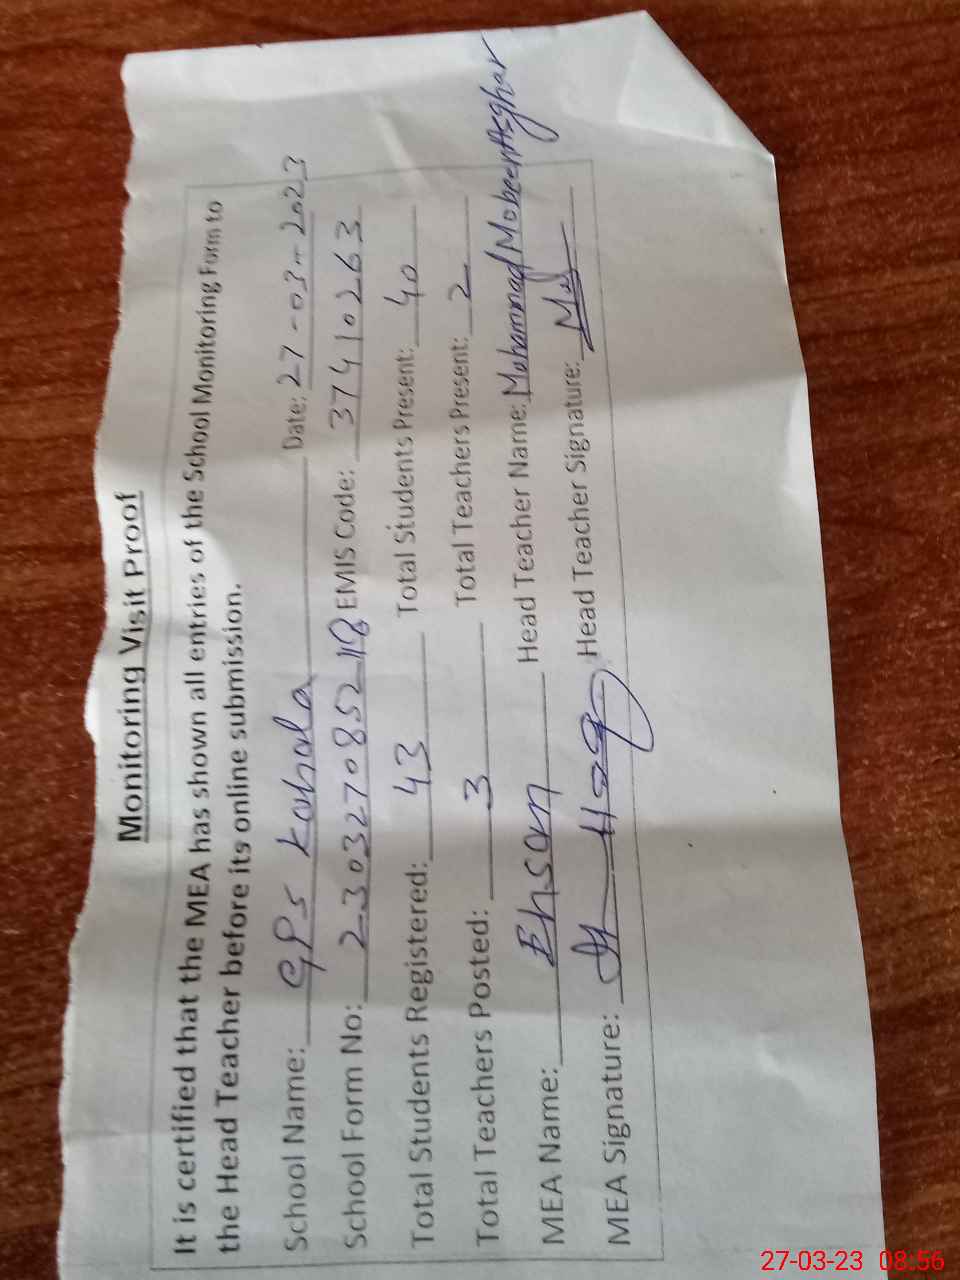 Monitoring Visit Proof
It is certified that the MEA has shown all entries of the School Monitoring Form to
the Head Teacher before its online submission.
School Name: GPS Kahala Date: 27-03-2023
School Form No: 230327085218 EMIS Code: 37410263
Total Students Registered: 43 Total Students Present: 40
Total Teachers Posted: 3 Total Teachers Present: 2
MEA Name: Ehsan Head Teacher Name: Mohammad Mobeen Asghar
MEA Signature: Haq Head Teacher Signature:
27-03-23 08:56